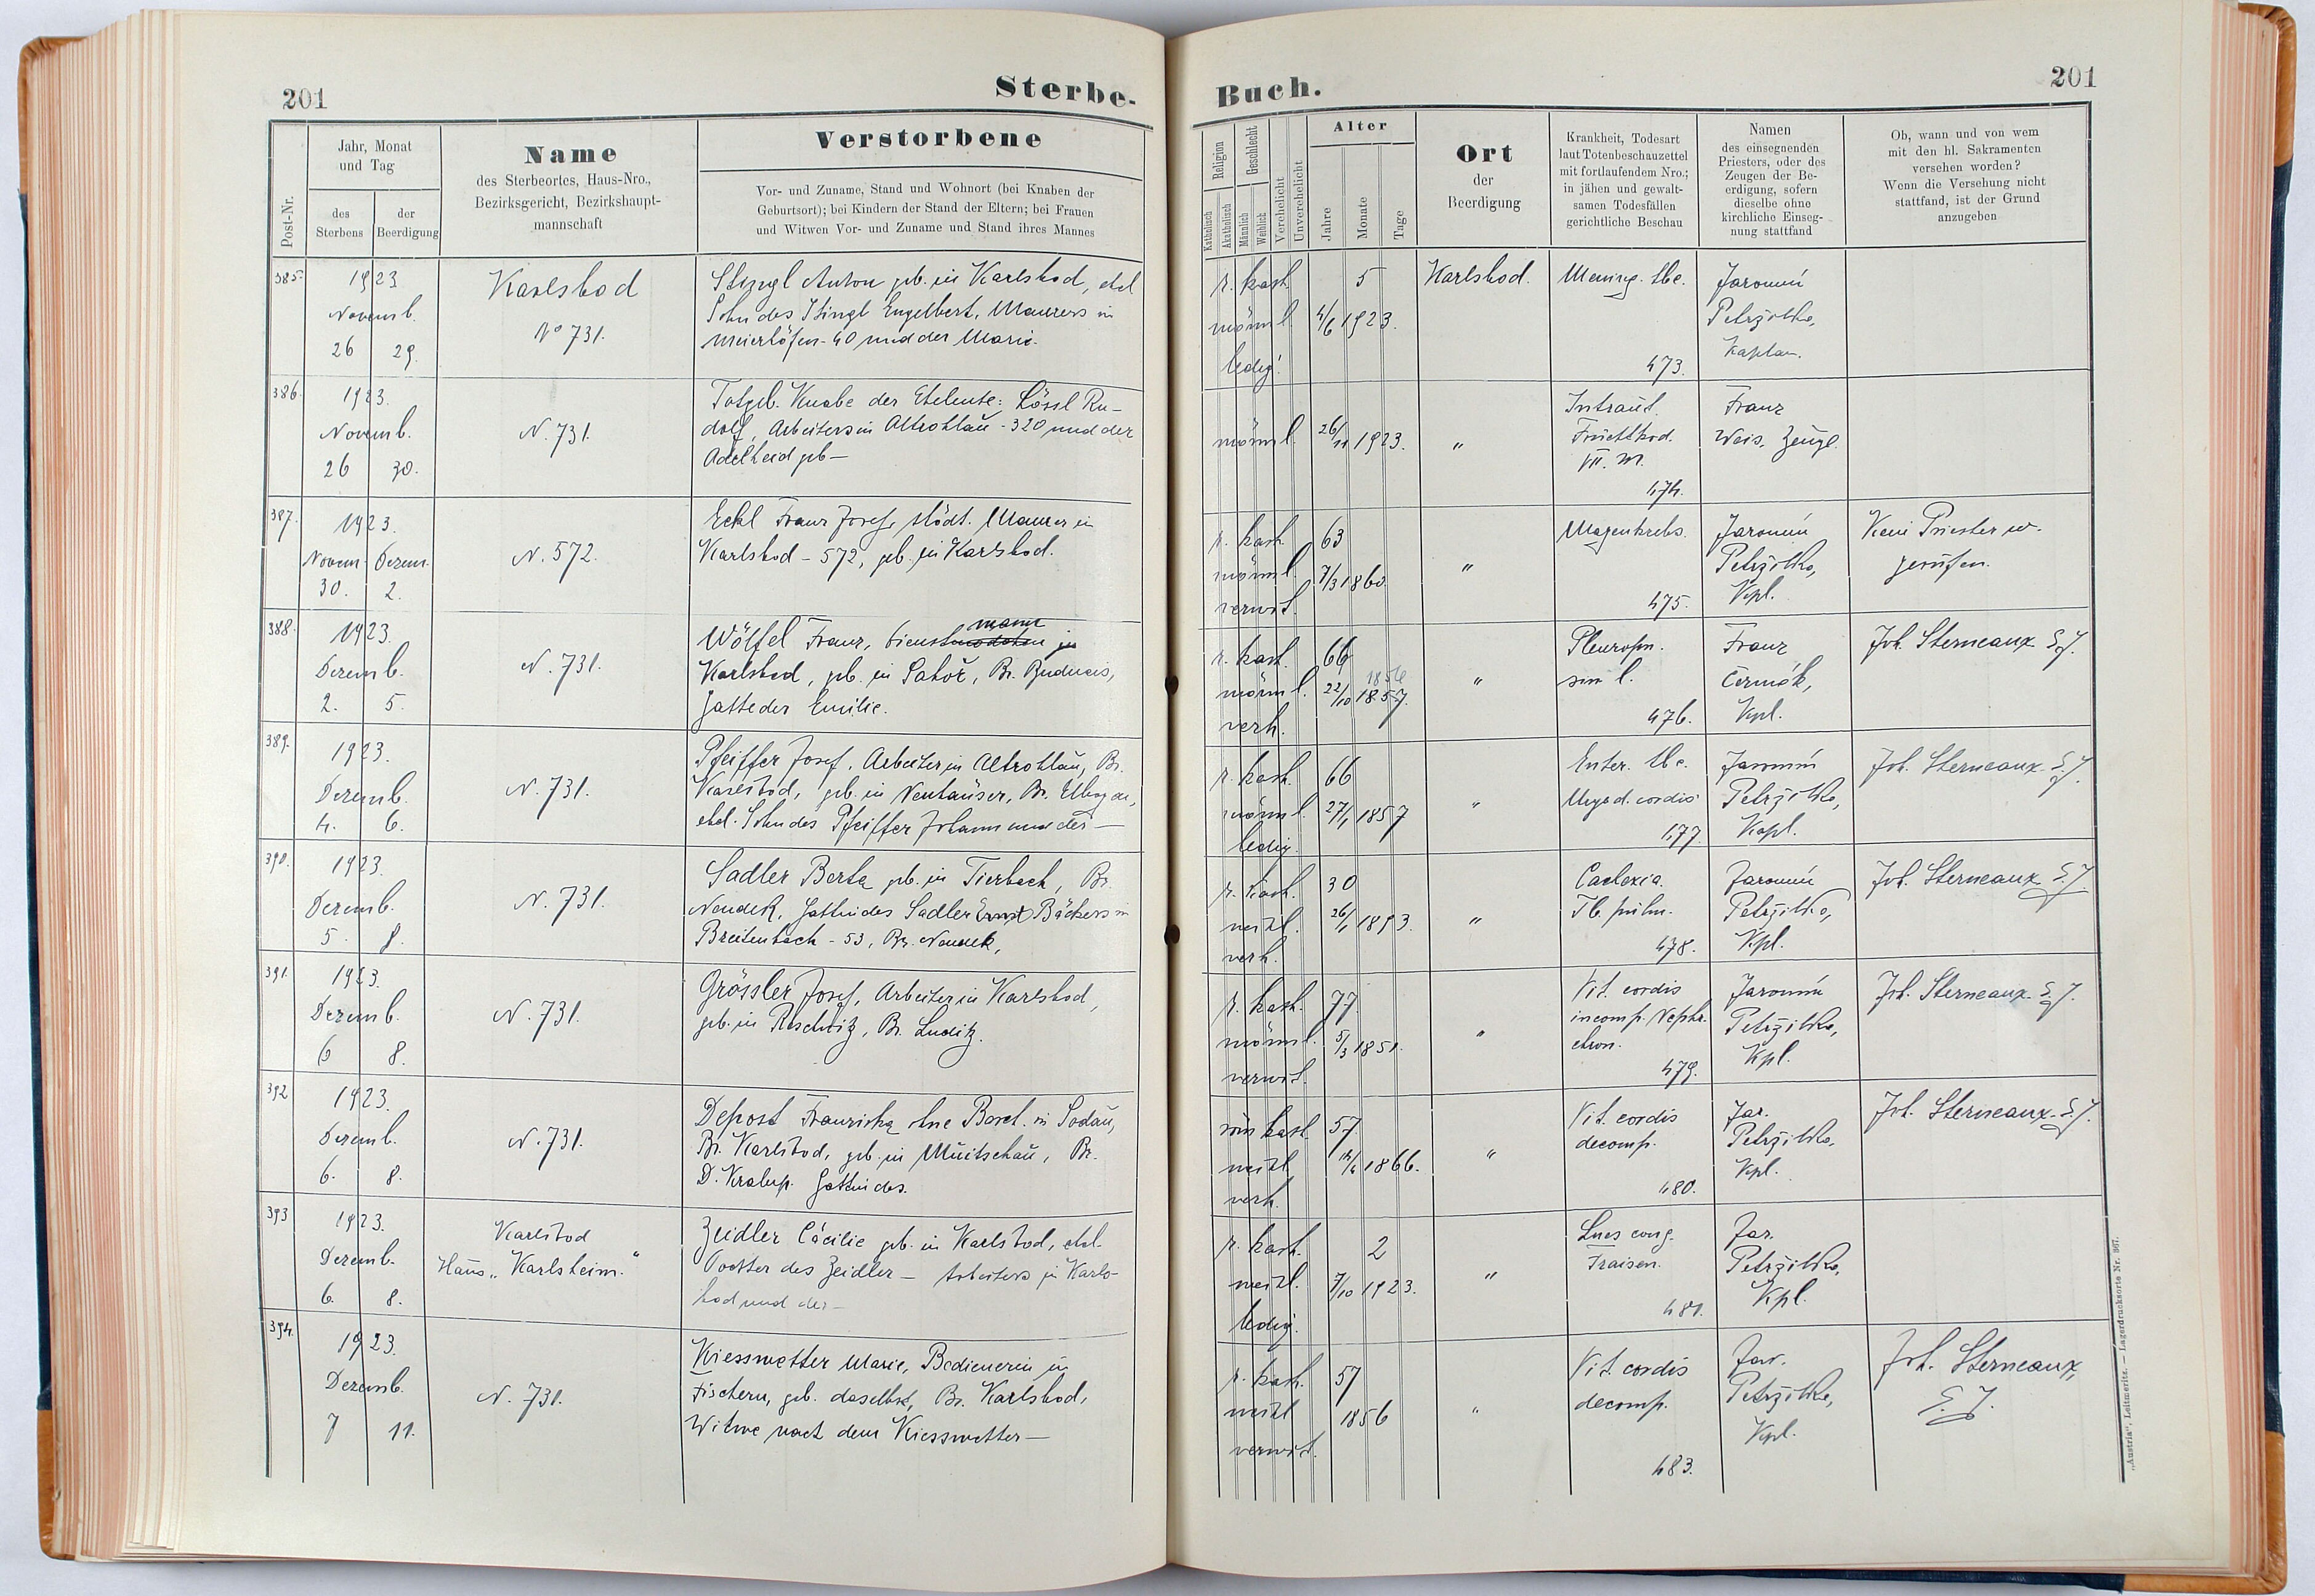 201
Sterbe-
Post-Nr.
Jahr, Monat
und Tag
des
Sterbens
der
Beerdigung
Name
des Sterbeortes, Haus-Nro.,
Bezirksgericht, Bezirkshaupt-
mannschaft
Verstorbene
Vor- und Zuname, Stand und Wohnort (bei Knaben der
Geburtsort); bei Kindern der Stand der Eltern; bei Frauen
und Witwen Vor- und Zuname und Stand ihres Mannes
385.
1923
Novemb.
26 29.
Karlsbad
No 731.
Stingl Anton geb. in Karlsbad, ehel
Sohn des Stingl Engelbert, Maurers in
Meierhöfen - 40 und der Marie.
386.
1923.
Novemb.
26 30.
N. 731.
Totgeb. Knabe der Eheleute: Lössl Ru-
dolf, Arbeiters in Altrohlau - 320 und der
Adelheid geb —
387.
1923.
Novem. Dezem.
30. 2.
N. 572.
Eckl Franz Josef, städt. Maurer in
Karlsbad - 572, geb. in Karlsbad.
388.
1923.
Dezemb.
2. 5.
N. 731.
mann
Wölfel Franz, Dienst in
Karlsbad, geb. in Bz. Buduais,
Gatte der Emilie.
389.
1923.
Dezemb.
4. 6.
N. 731.
Pfeiffer Josef, Arbeiter in Altrohlau, Bz.
Karlsbad, geb. in Neuhäuser, Bz. Elbogen,
ehel. Sohn des Pfeiffer Johann und der —
390.
1923.
Dezemb.
5. 8.
N. 731.
Sadler Berta geb. in Tierbach, Bz.
Neudek, Gattin des Sadler Ernst Bäckers in
Breitenbach - 53, Bz. Neudek,
391.
1923.
Dezemb.
6 8.
N. 731.
Grössler Josef, Arbeiter in Karlsbad,
geb. in Reschwitz, Bz. Luditz.
392
1923.
Dezemb.
6. 8.
N. 731.
Depost Franziska ohne Besch. in Sodau,
Bz. Karlsbad, geb. in Bz.
D. Kralup. Gattin des.
393
1923.
Dezemb.
6. 8.
Karlsbad
Haus „Karlsheim."
Zeidler Cäcilie geb. in Karlsbad, ehel.
Tochter des Zeidler — Arbeiters in Karls-
bad und der —
394.
1923.
Dezemb.
7 11.
N. 731.
Kiesswetter Marie, Bedienerin in
Fischern, geb. daselbst, Bz. Karlsbad,
Witwe nach dem Kiesswetter —
Buch.
201
Religion
Katholisch
Akatholisch
Geschlecht
Männlich
Weiblich
Verehelicht
Unverehelicht
Alter
Jahre
Monate
Tage
Ort
der
Beerdigung
Krankheit, Todesart
laut Totenbeschauzettel
mit fortlaufendem Nro.;
in jähen und gewalt-
samen Todesfällen
gerichtliche Beschau
Namen
des einsegnenden
Priesters, oder des
Zeugen der Be-
erdigung, sofern
dieselbe ohne
kirchliche Einseg-
nung stattfand
Ob, wann und von wem
mit den hl. Sakramenten
versehen worden?
Wenn die Versehung nicht
stattfand, ist der Grund
anzugeben
r. kath.
männl.
ledig.
5
4/6 1923.
Karlsbad.
Mening. tbc.
473.
Jaromír
Petrzilka,
Kaplan.
männl.
26/11 1923.
"
Intraut.
Fruchttod.
VII. M.
474.
Franz
Weis, Zeuge.
r. kath.
männl.
verwit.
63
7/3 1860
"
Magenkrebs.
475.
Jaromír
Petrzilka,
Kpl.
Kein Priester w.
gerufen.
r. kath.
männl.
verh.
66
1856
22/10 1857.
"
Pleuropn.
sin l.
476.
Franz
Čermák,
Kpl.
Joh. Sterneaux S.J.
r. kath.
männl.
ledig.
66
27/1 1857
"
Enter. tbc.
Myod. cordis
477.
Jaromír
Petrzilka,
Kapl.
Joh. Sterneaux S.J.
r. kath.
weibl.
verh.
30
26/1 1893.
"
Cachexia.
Tb. pulm.
478.
Jaromír
Petrzilka,
Kpl.
Joh. Sterneaux S.J.
r. kath.
männl.
verwit.
77.
5/3 1851.
"
Vit. cordis
incomp. Nephr.
chron.
479.
Jaromír
Petrzilka,
Kpl.
Joh. Sterneaux S.J.
röm kath.
weibl
verh.
57.
1866.
"
Vit. cordis
decomp.
480.
Jar.
Petrzilka.
Kpl.
Joh. Sterneaux S.J.
r. kath.
weibl.
ledig.
2
7/10 1923.
"
Lues cong.
Fraisen.
481.
Jar.
Petrzilka,
Kpl.
r. kath.
weibl
verwit.
57
1856
"
Vit. cordis
decomp.
483.
Jar.
Petrzilka,
Kpl.
Joh. Sterneaux,
S.J.
„Austria", Leitmeritz. — Lagerdrucksorte Nr. 367.